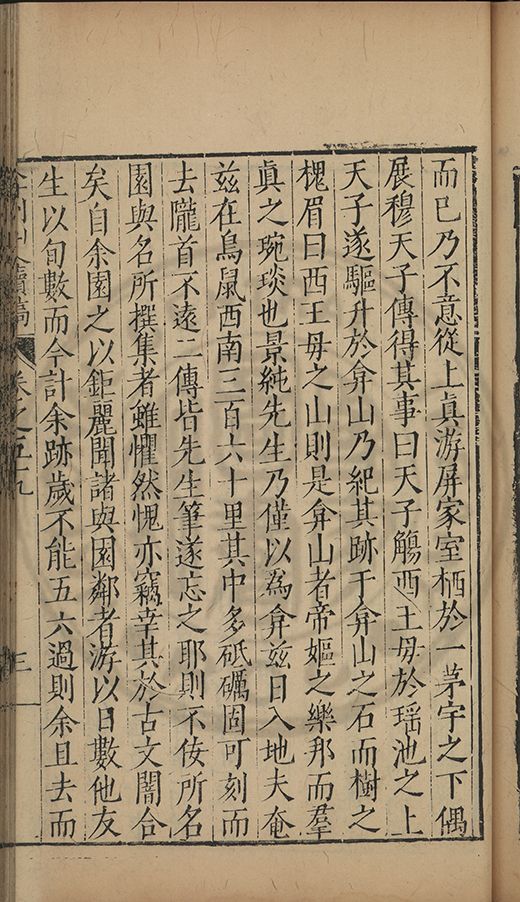 而已乃不意從上真游屏家室栖於一茅宇之下偶
展穆天子傳得其事曰天子觴西王毋於瑶池之上
天子遂驅升於弇山乃紀其跡于弇山之石而樹之
槐眉曰西王毋之山則是弇山者帝嫗之樂邦而羣
真之琬琰也景純先生乃僅以為弇茲日入地夫奄
茲在鳥鼠西南三百六十里其中多砥礪固可刻而
去隴首不遠二傳皆先生筆遂忘之耶則不佞所名
園與名所撰集者雖懼然愧亦竊幸其於古文闇合
矣自余園之以鉅麗聞諸與園鄰者游以日數他友
生以旬數而今計余跡歲不能五六過則余且去而
卷之五十九
三